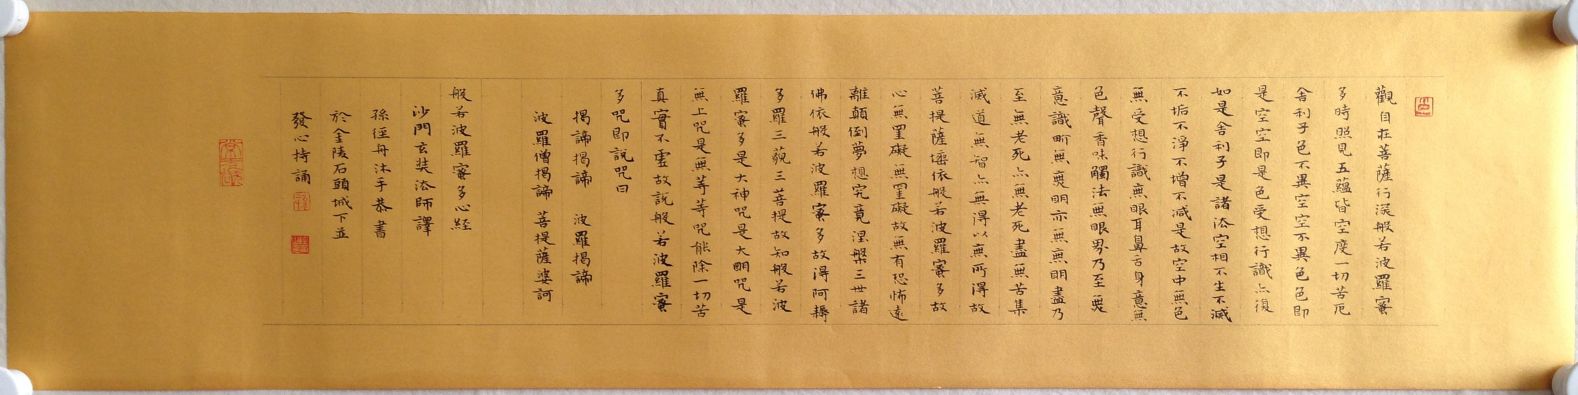 觀自在菩薩行深般若波羅蜜
多時照見五蘊皆空度一切苦厄
舍利子色不異空空不異色色即
是空空即是色受想行識亦復
如是舍利子是諸法空相不生不滅
不垢不淨不增不減是故空中無色
無受想行識無眼耳鼻舌身意無
色聲香味觸法無眼界乃至無
意識界無無明亦無無明盡乃
至無老死亦無老死盡無苦集
滅道無智亦無得以無所得故
菩提薩埵依般若波羅蜜多故
心無罣礙無罣礙故無有恐怖遠
離顛倒夢想究竟涅槃三世諸
佛依般若波羅蜜多故得阿耨
多羅三藐三菩提故知般若波
羅蜜多是大神咒是大明咒是
無上咒是無等等咒能除一切苦
真實不虛故說般若波羅蜜
多咒即說咒曰
揭諦揭諦 波羅揭諦
波羅僧揭諦 菩提薩婆訶
般若波羅蜜多心經
沙門玄奘法師譯
孫徑舟沐手恭書
於金陵石頭城下並
發心持誦